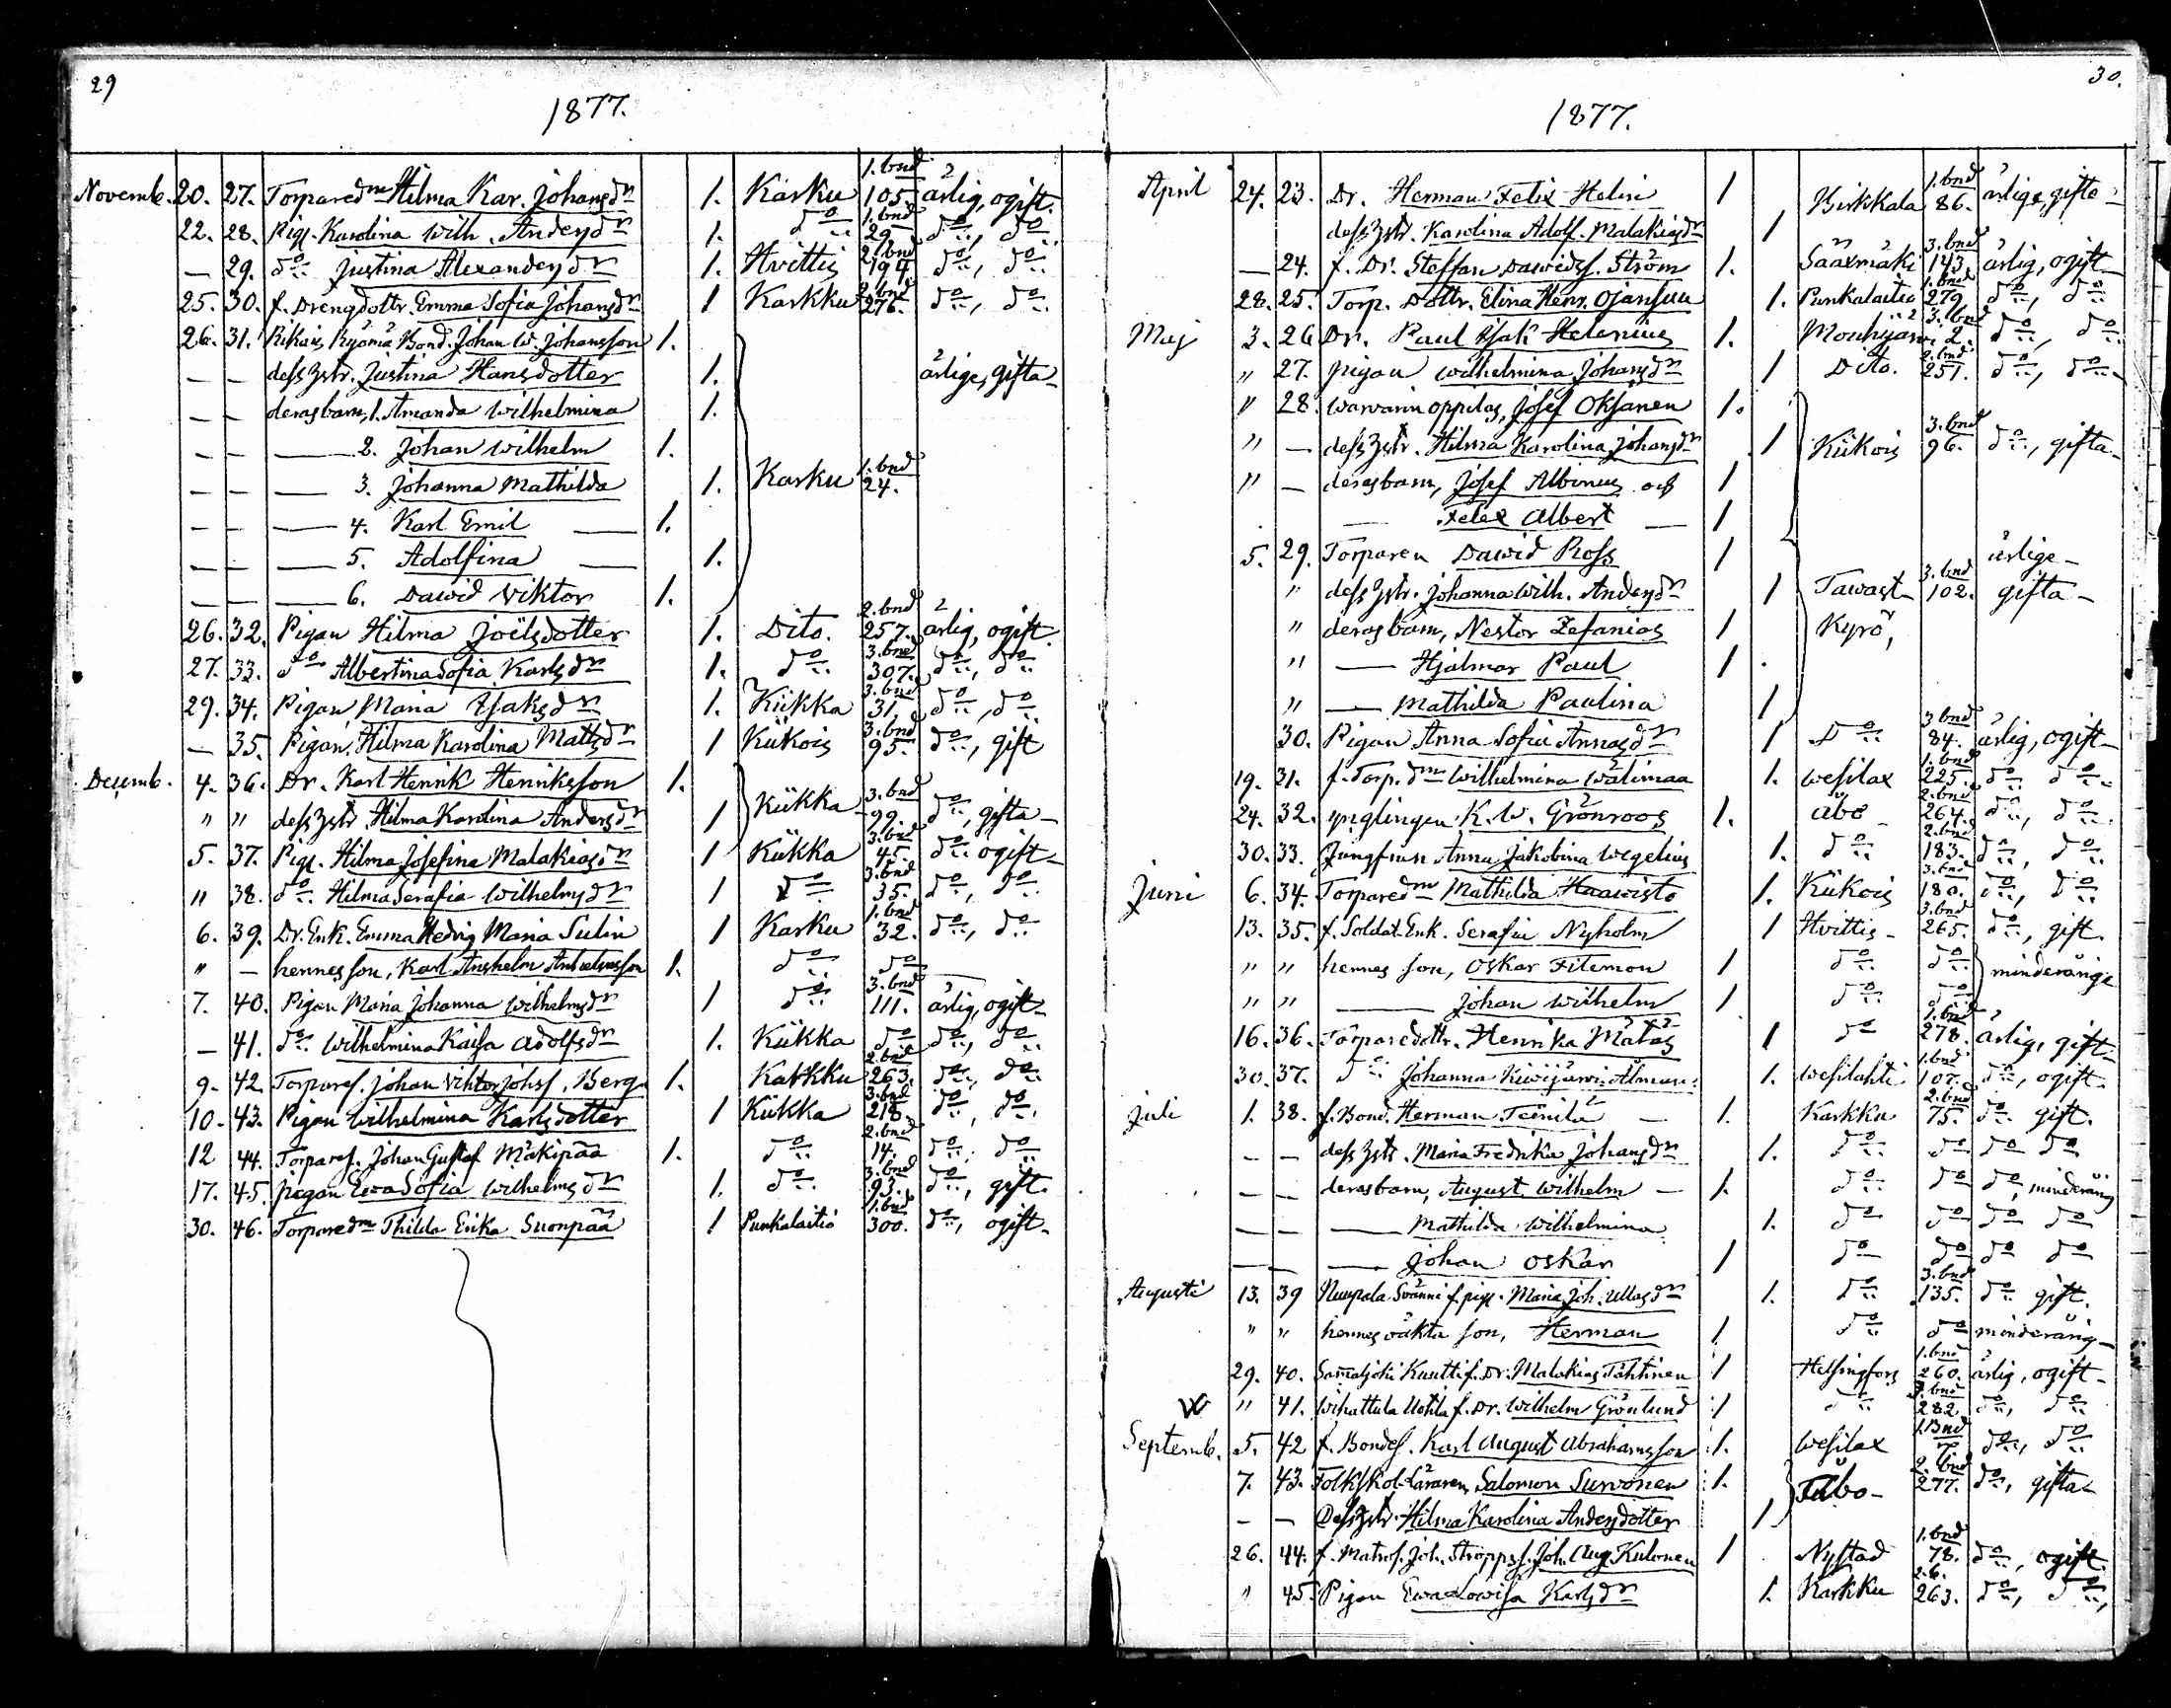 29
1877.
Novemb. 20. 27. Torparedr Hilma Kar. Johansdr 1. Karku 1. bnd 105. ärlig, ogift.
22. 28. Pig. Karolina Wilh. Andersdr 1. do 1. bnd 29 do, do
— 29. do Justina Alexandersdr 1. Hvittis 2. bnd 194. do, do
25. 30. f. Drengdottr. Emma Sofia Johansdr 1 Karkku 2. bnd 276. do, do
26. 31. Rikais Ryömä Bond. Johan W. Johansson 1.
— — dess hstr. Justina Hansdotter 1. ärlige, gifta
— — deras barn, 1. Amanda Wilhelmina 1.
— — — 2. Johan Wilhelm 1.
— — — 3. Johanna Mathilda 1. Karku 1. bnd 24.
— — — 4. Karl Emil — 1.
— — — 5. Adolfina — 1.
— — — 6. Dawid Viktor 1.
26. 32. Pigan Hilma Joëlsdotter 1. Dito. 2. bnd 257. ärlig, ogift.
27. 33. do Albertina Sofia Karlsdr 1. do 3. bnd 307. do, do
29. 34. Pigan Maria Isaksdr 1. Kiikka 3. bnd 31, do, do
— 35. Pigan Hilma Karolina Mattsdr 1 Kiikois 3. bnd 95. do, gift
Decemb. 4. 36. Dr. Karl Henrik Henriksson 1.
" " dess hstr. Hilma Karolina Andersdr 1 Kiikka 3. bnd 99. do, gifta
5. 37. Pig. Hilma Josefina Malakiasdr 1 Kiikka 3. bnd 45. do ogift
" 38. do Hilma Serafia Wilhelmsdr 1 do 3. bnd 35. do, do
6. 39. Dr. Enk. Emma Hedvig Maria Sulin 1 Karku 1. bnd 32. do, do
" — hennes son, Karl Anshelm Anshelmsson 1. do do
7. 40. Pigan Maria Johanna Wilhelmsdr 1 do 3. bnd 111. ärlig, ogift
— 41. do Wilhelmina Kaisa Adolfsdr 1. Kiikka do do, do
9. 42. Torpares. Johan Viktor Johss. Berg 1. Karkku 2. bnd 263. do, do
10. 43. Pigan Wilhelmina Karlsdotter 1 Kiikka 3. bnd 218. do, do.
12 44. Torpares. Johan Gustaf Mäkipää 1. do 2. bnd 14. do. do
17. 45. pigan Ewa Sofia Wilhelmsdr 1. do 3. bnd 93. do, gift.
30. 46. Torparedr Thilda Erika Suonpää 1 Punkalaitio 1. bnd 300. do, ogift.
30.
1877.
April 24. 23. Dr. Herman Felix Helin 1 Birkkala 1. bnd 86. ärlige, gifte
dess hstr. Karolina Adolf. Malakiasdr 1
— 24. f. Dr. Steffan Dawidss. Ström 1. Sääxmäki 3. bnd 143 ärlig, ogift
28. 25. Torp. Dottr. Elina Henr. Ojansuu 1. Punkalaitio 1. bnd 279 do, do
Maj 3. 26 Dr. Paul Isak Helenius 1. Mouhijärwi 3. bnd 2. do, do
" 27. pigan Wilhelmina Johansdr 1 Dito. 2. bnd 251. do, do
" 28. warwarin oppilas, Josef Oksanen 1.
" — dess hstr. Hilma Karolina Johansdr 1 Kiikois 3. bnd 96. do, gifta
" — deras barn, Josef Albinus och 1
— Felex Albert — 1
5. 29. Torparen Dawid Ross 1 ärlige
" dess hstr. Johanna Wilh. Andersdr 1 Tawast- 3. bnd 102. gifta
" deras barn, Nestor Zefanias 1 Kyrö,
" — Hjalmar Paul 1
" — Mathilda Paulina 1
30. Pigan Anna Sofia Annasdr 1 Do 3 bnd 84. ärlig, ogift
19. 31. f. Torp. dr Wilhelmina Wälimaa 1. Wesilax 1. bnd 225. do do
24. 32. ynglingen K. W. Grönroos 1. Åbo 2. bnd 264. do, do
30. 33. Jungfrun Anna Jakobina Wegelius 1. do 2. bnd 183. do, do
Juni 6. 34. Torparedr Mathilda Haawisto 1. Kiikois 3. bnd 180. do, do
13. 35. f. Soldat. Enk. Serafia Nyholm 1 Hvittis 3. bnd 265. do, gift.
" " hennes son, Oskar Filemon 1 do do minderårige
" " — Johan Wilhelm 1 do do
16. 36. Torparedottr. Henrika Mätäs 1 do 1. bnd 278. ärlig, gift
30. 37. do Johanna Kiwijärwi 1. Wesilahti 1. bnd 107. do, ogift.
Juli 1. 38. f. Bond. Herman Teinilä — 1. Karkku 2. bnd 75. do gift.
— — dess hstr. Maria Fredrika Johansdr 1. do do do do
— — deras barn, August Wilhelm — 1. do do do, minderårig
— — — Mathilda Wilhelmina 1. do do do do
— — — Johan Oskar 1 do do do do
Augusti 13. 39 Nuupala Svänni f. pig. Maria Joh. Ullasdr 1. do 3. bnd 135. do gift.
" " hennes oäkta son, Herman 1 do do minderårig
29. 40. Sammaljoki Knutti f. Dr. Malakias Tähtinen 1 Helsingfors 1. bnd 260. ärlig, ogift
" 41. Wihattula Uotila f. Dr. Wilhelm Grönlund 1 do 3. bnd 282 do, do
Septemb. 5. 42 f. Bondes. Karl August Abrahamsson 1. Wesilax 1. Bnd 7 do, do
7. 43. Folkskol-läraren Salomon Surwonen 1. Åbo 2. bnd 277. do, gifta
— — Dess hstr. Hilma Karolina Andersdotter 1
26. 44. f. Matros. Joh. Ströppss. Joh. Aug. Kulonen 1 Nystad 1. bnd 78. do, ogift
" 45. Pigan Ewa Lowisa Karlsdr 1. Karkku 2. b. 263. do, do,